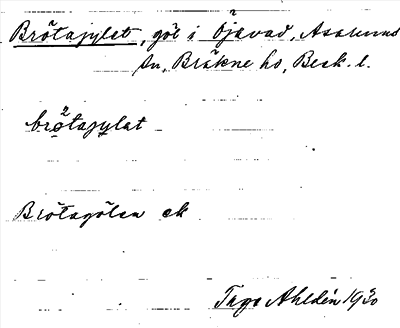 Brötajylet, göl i Öjavad, Asarums
sn, Bräkne hd, Blek. l.
brötajylat
Brötagölen ek
Tage Ahldén 1930